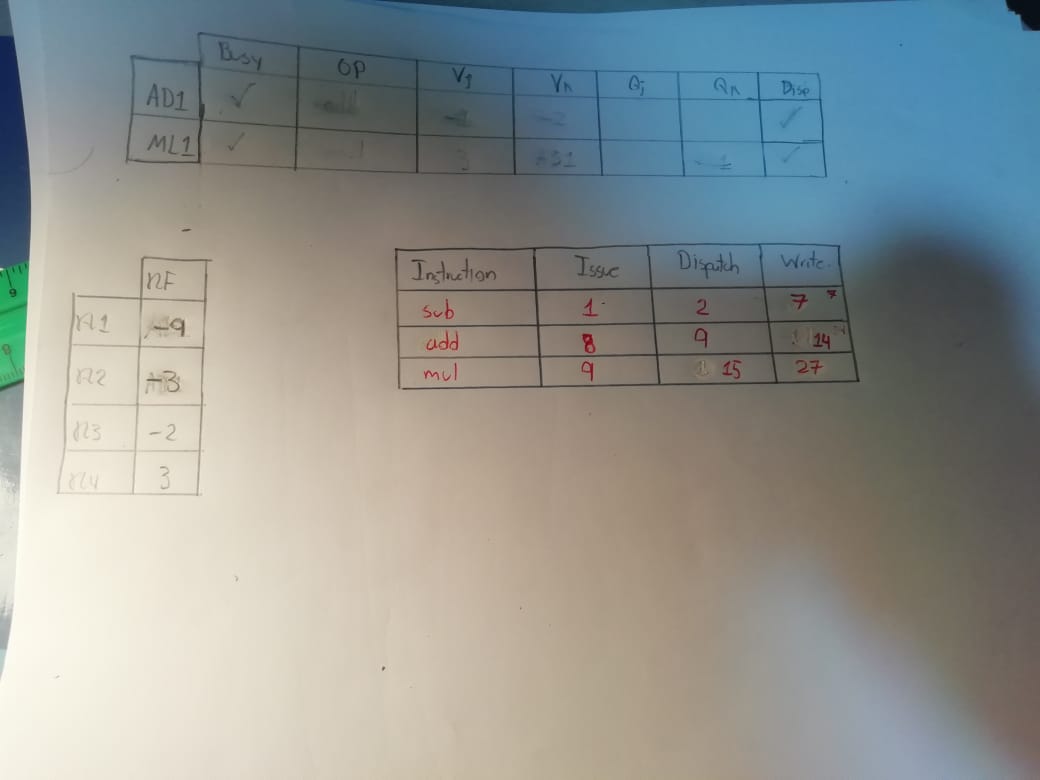 Busy OP Vj Vk Qj Qk Disp
AD1 ✓ add -1 -2 ✓
ML1 ✓ 3 ✓
RF
R1 -9
R2 -3
R3 -2
R4 3
Instruction Issue Dispatch Write
sub 1 2 7 7
add 8 9 14
mul 9 15 27